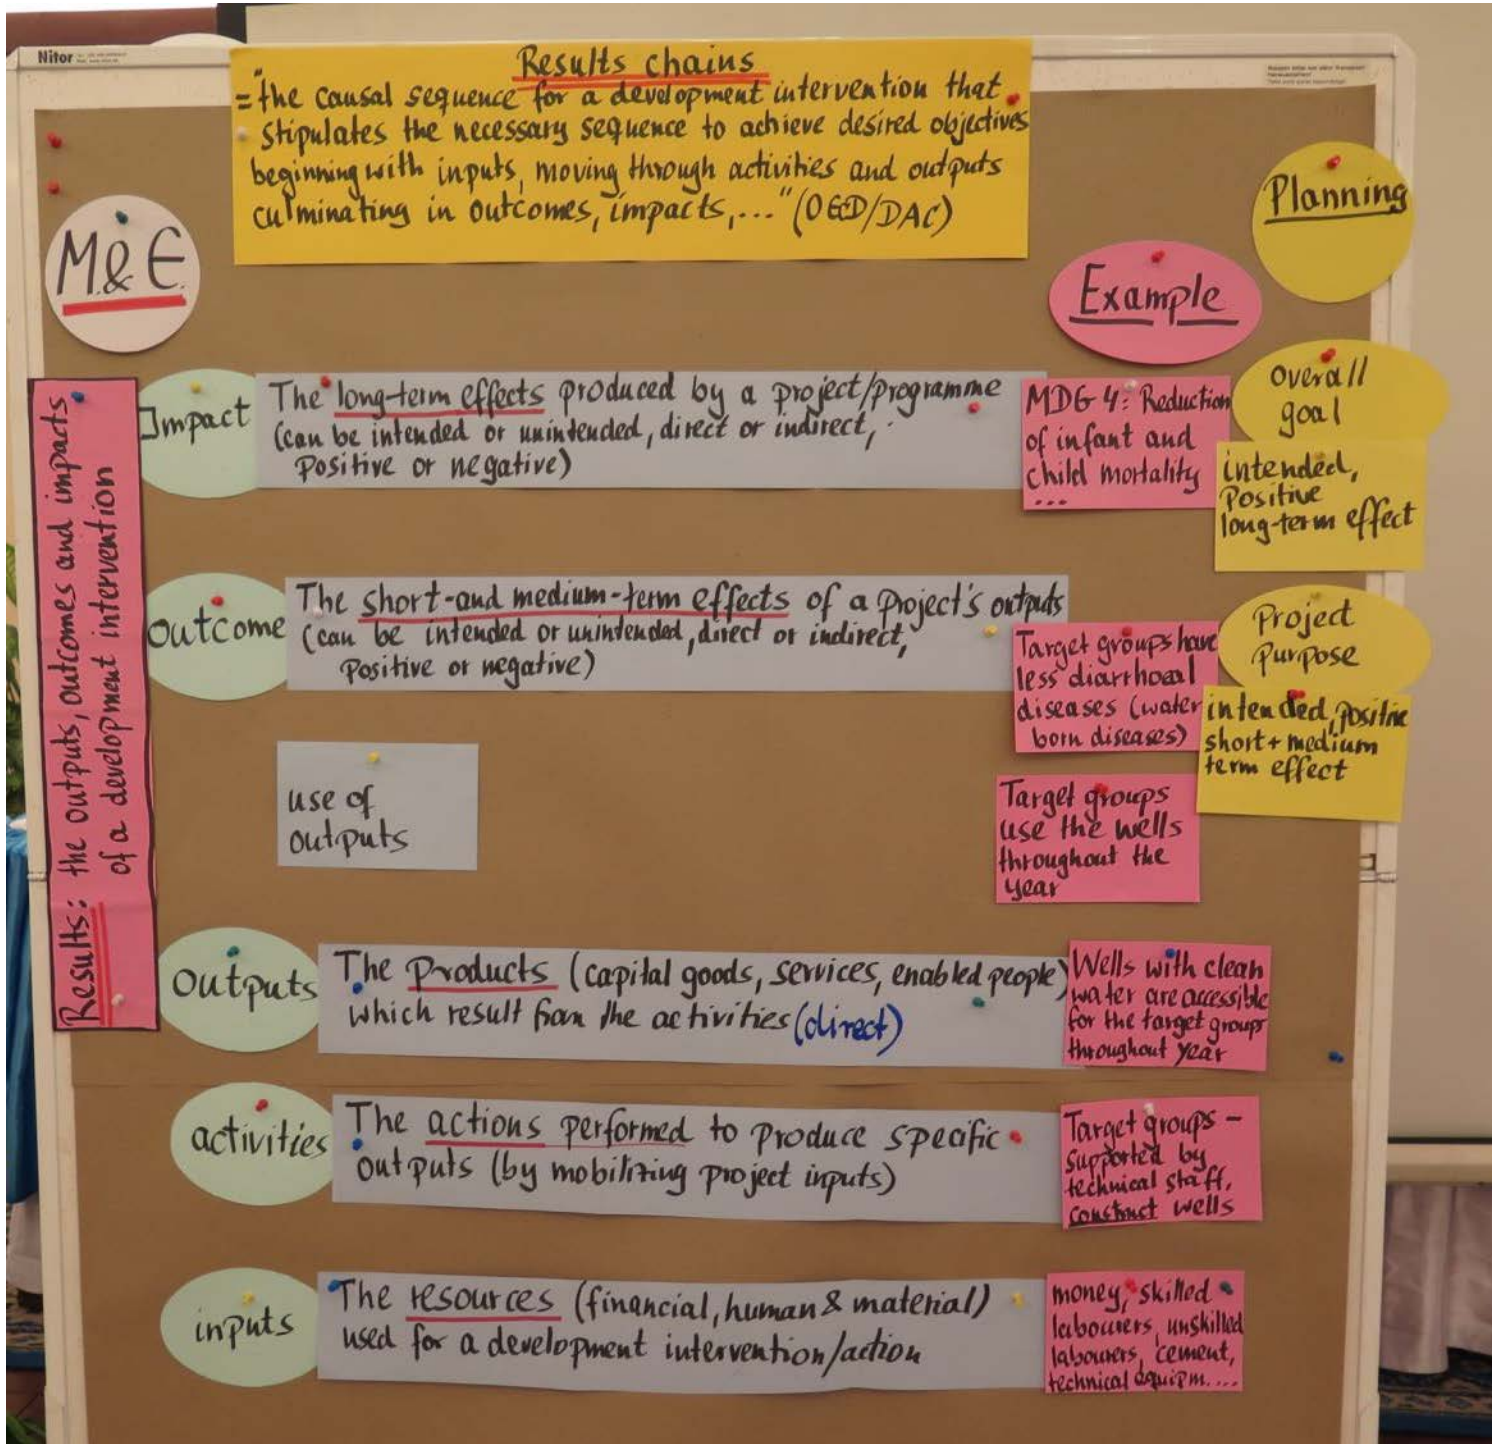 Nitor
Results chains
= "the causal sequence for a development intervention that
stipulates the necessary sequence to achieve desired objectives
beginning with inputs, moving through activities and outputs
culminating in outcomes, impacts,..." (OECD/DAC)
Planning
M&E.
Example
Impact
The long-term effects produced by a project/programme
(can be intended or unintended, direct or indirect,
Positive or negative)
MDG 4: Reduction
of infant and
child mortality
...
Overall
goal
intended,
Positive
long-term effect
Results: the outputs, outcomes and impacts
of a development intervention
outcome
The short-and medium-term effects of a project's outputs
(can be intended or unintended, direct or indirect,
Positive or negative)
Target groups have
less diarrhoeal
diseases (water
born diseases)
Project
Purpose
intended, positive
short + medium
term effect
use of
outputs
Target groups
use the wells
throughout the
year
Outputs
The Products (capital goods, services, enabled people)
which result from the activities (direct)
Wells with clean
water are accessible
for the target groups
throughout year
activities
The actions performed to produce specific
outputs (by mobilizing project inputs)
Target groups -
supported by
technical staff,
construct wells
inputs
The resources (financial, human & material)
used for a development intervention/action
money, skilled
labourers, unskilled
labourers, cement,
technical equipm....